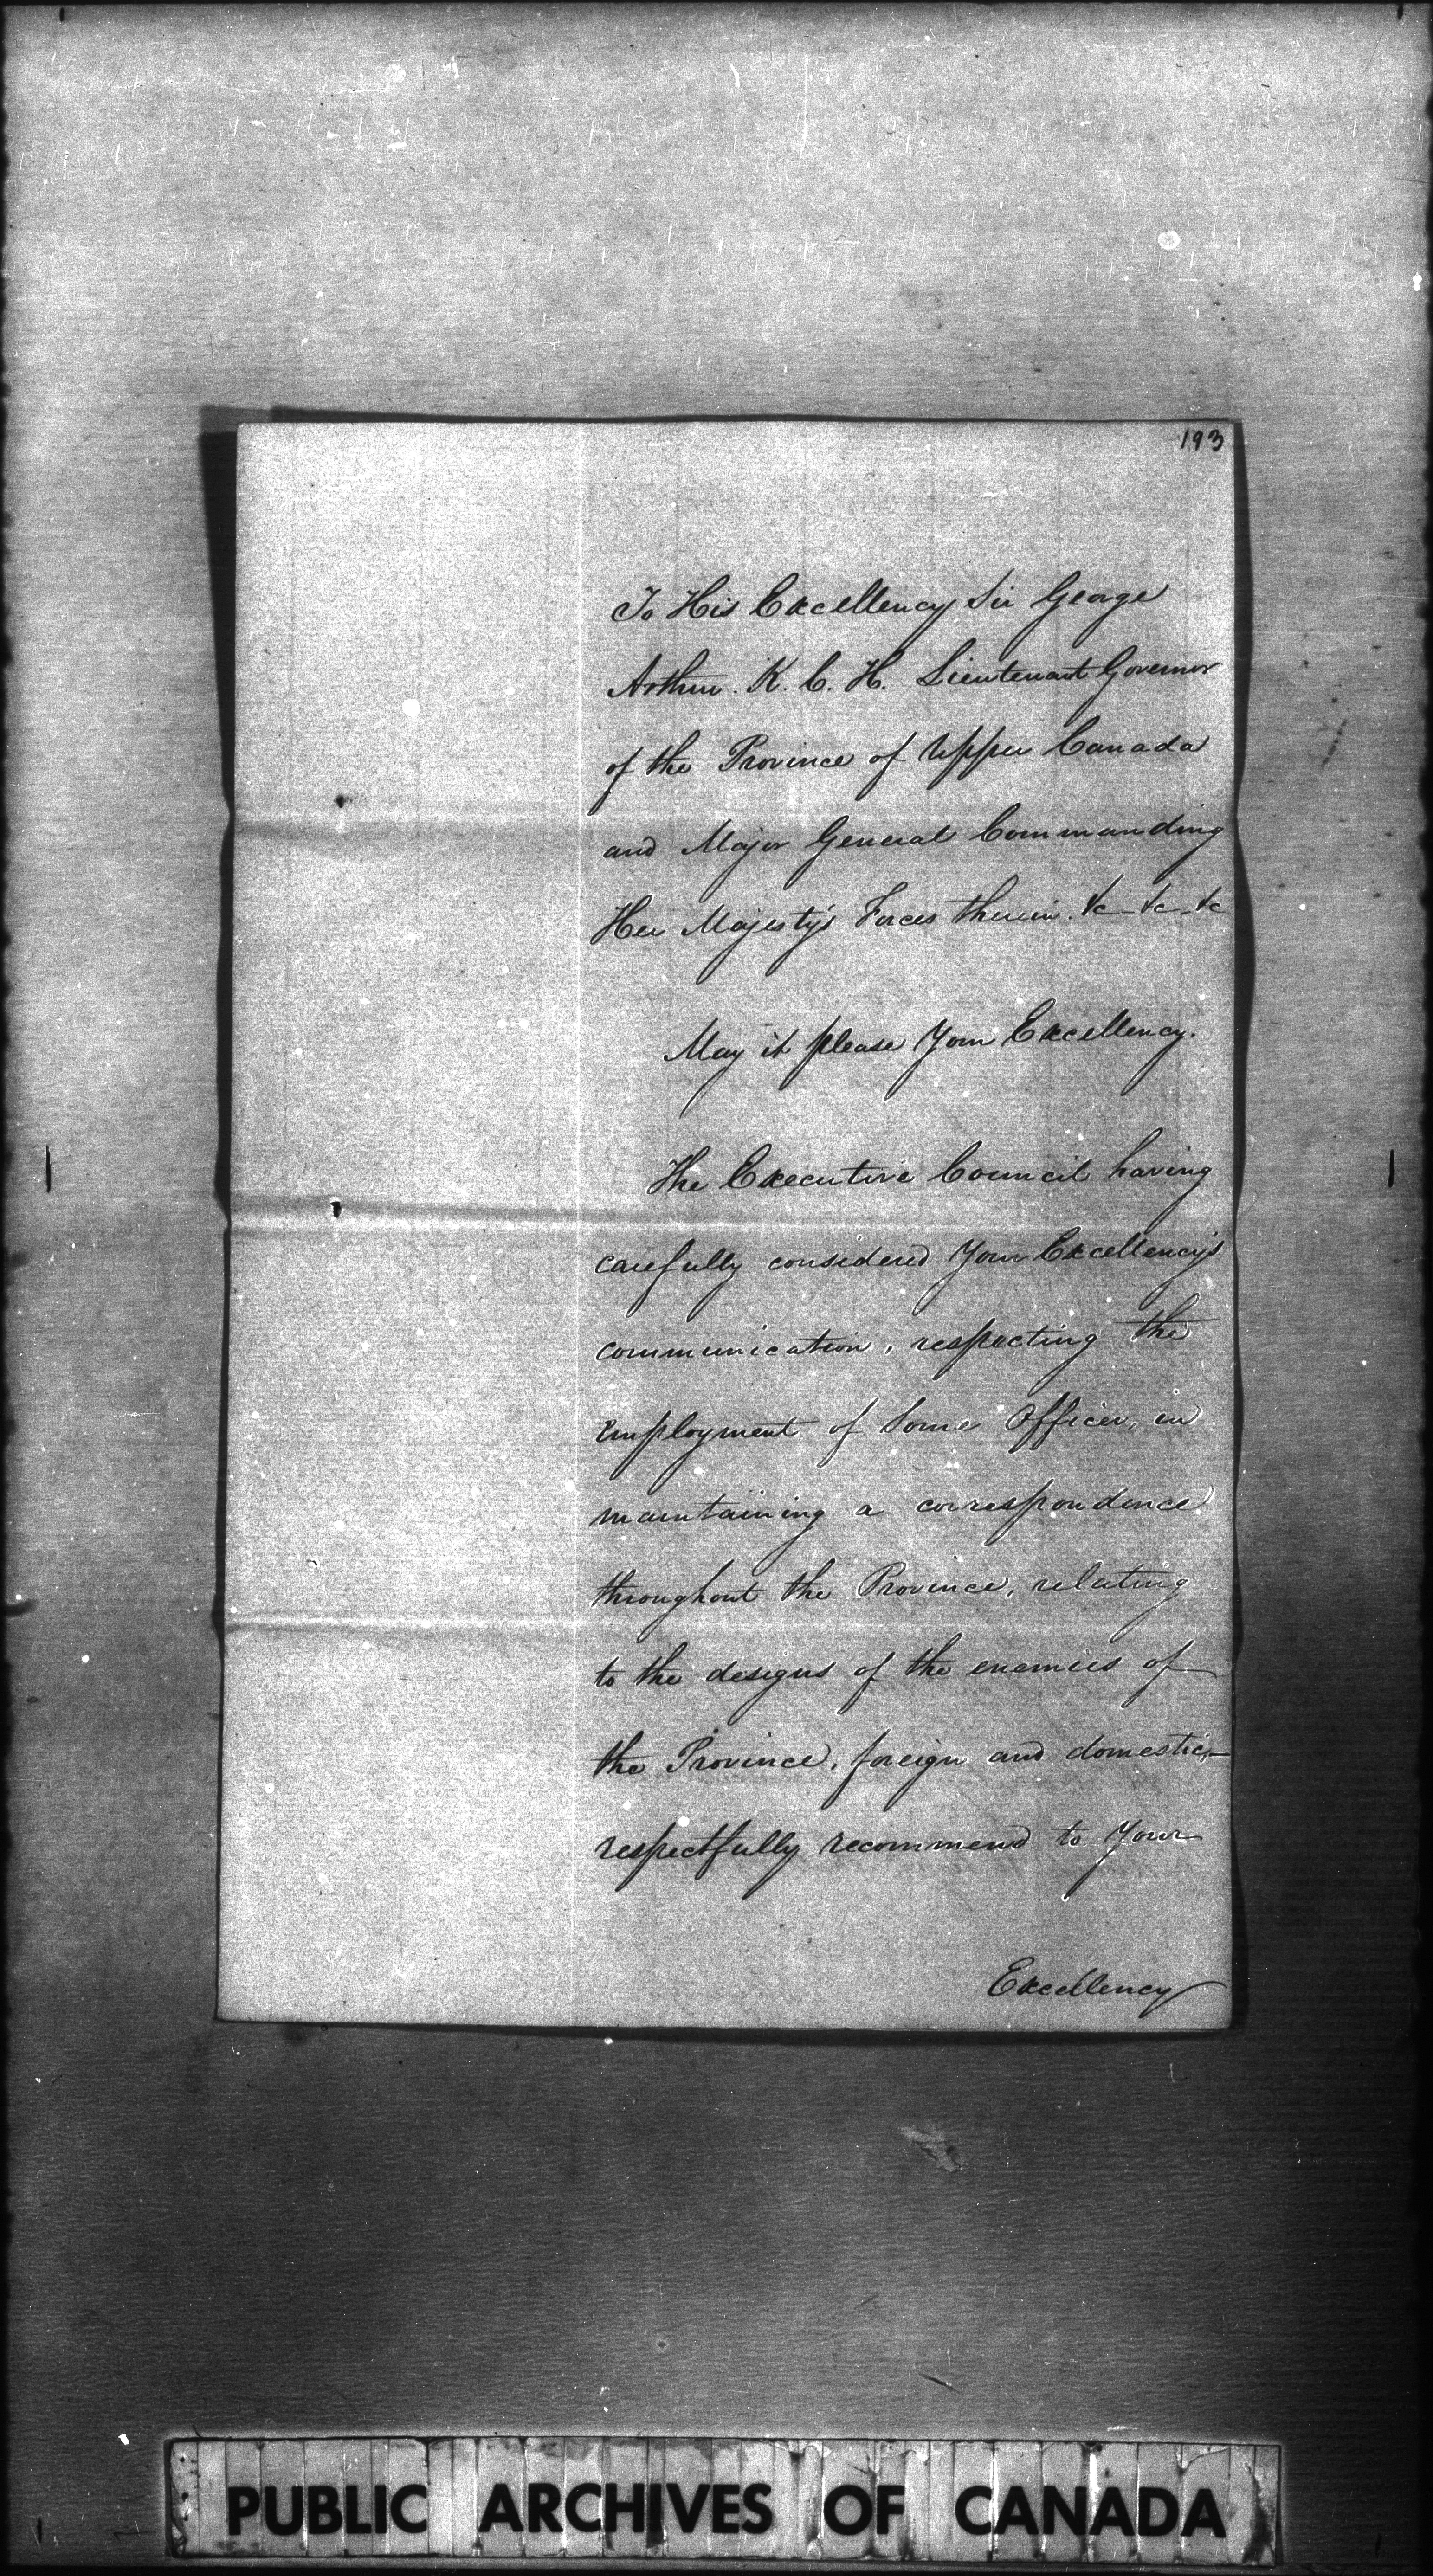 193
To His Excellency Sir George
Arthur. K. C. H. Lieutenant Governor
of the Province of Upper Canada
and Major General Commanding
Her Majesty's Forces therein. &c - &c - &c
May it please Your Excellency.
The Executive Council having
carefully considered Your Excellency's
communication, respecting the
employment of some Officer, in
maintaining a correspondence
throughout the Province, relating
to the designs of the enemies of
the Province, foreign and domestic,
respectfully recommend to Your
Excellency
PUBLIC ARCHIVES OF CANADA